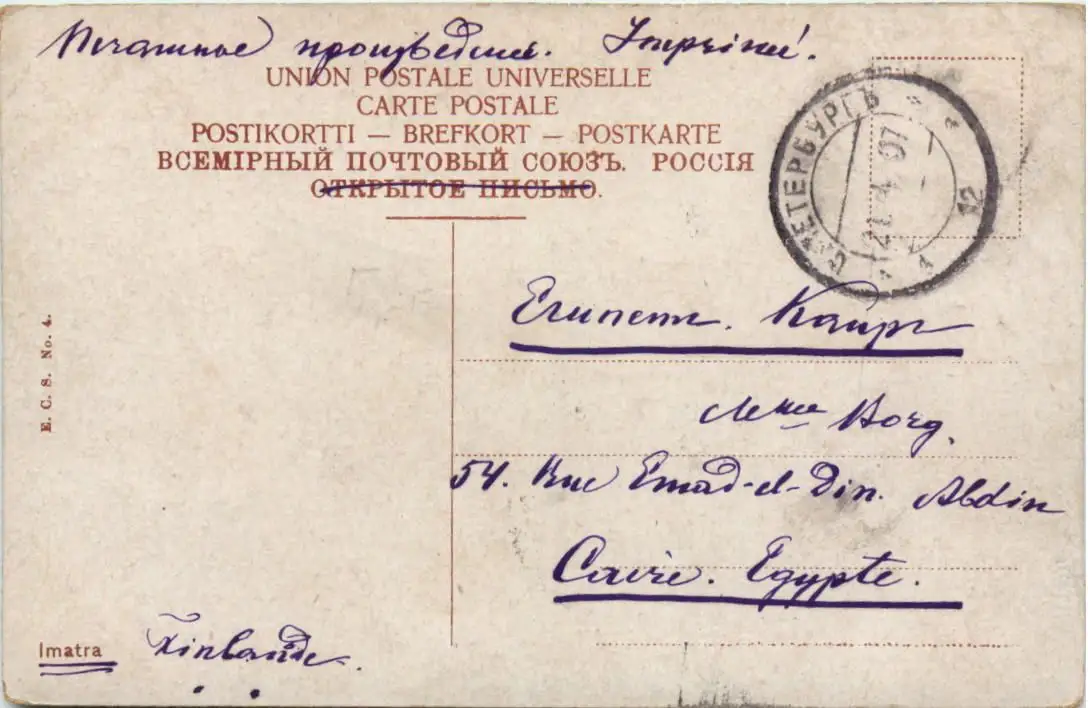 Печатное произведение. Imprimé.
UNION POSTALE UNIVERSELLE
CARTE POSTALE
POSTIKORTTI — BREFKORT — POSTKARTE
ВСЕМІРНЫЙ ПОЧТОВЫЙ СОЮЗЪ. РОССІЯ
ОТКРЫТОЕ ПИСЬМО.
С.ПЕТЕРБУРГЪ
21 4 07
12
Египетъ. Каиръ
Mme
54. Rue Emad-el-Din. Abdin
Caire. Egypte.
E. C. S. No. 4.
Imatra Finlande.